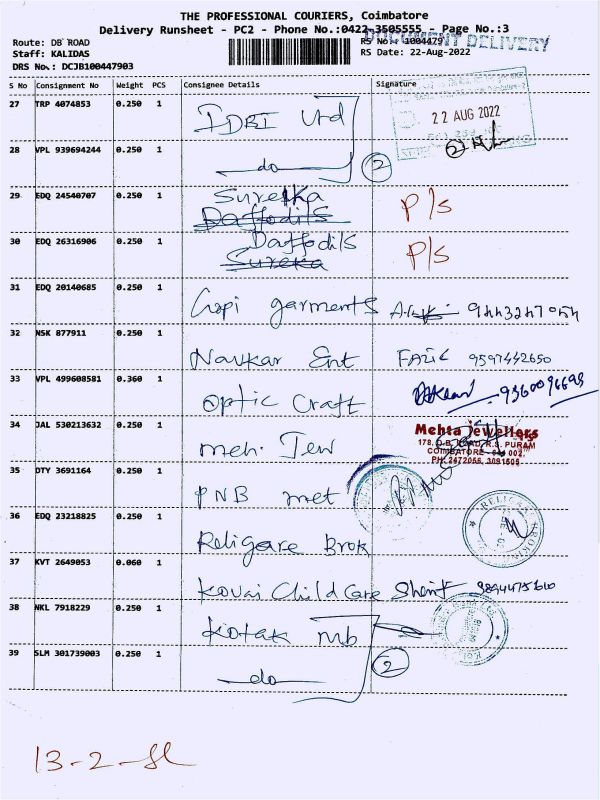 THE PROFESSIONAL COURIERS, Coimbatore
Delivery Runsheet - PC2 - Phone No.:0422-3505555 - Page No.:3
DOCUMENT DELIVERY
Route: DB ROAD
RS No.: 1004479
Staff: KALIDAS
RS Date: 22-Aug-2022
DRS No.: DCJB100447903
S No Consignment No Weight PCS Consignee Details Signature
27 TRP 4074853 0.250 1 IDBI
22 AUG 2022
28 VPL 939694244 0.250 1 do 2
29 EDQ 24540707 0.250 1 Sureka P/s
Daffodils
30 EDQ 26316906 0.250 1 Daffodils P/s
Sureka
31 EDQ 20140685 0.250 1 Gopi garments
32 NSK 877911 0.250 1 Navkar Ent 9597442650
33 VPL 499608581 0.360 1 Optic Craft
34 JAL 530213632 0.250 1 meh. Jew
Mehta Jewellers
COIMBATORE
35 DTY 3691164 0.250 1 PNB met
36 EDQ 23218825 0.250 1 Religare Brok
37 KVT 2649053 0.060 1 Kovai Child Care
38 NKL 7918229 0.250 1 Kotak mb
39 SLM 301739003 0.250 1 do 2
13-2-